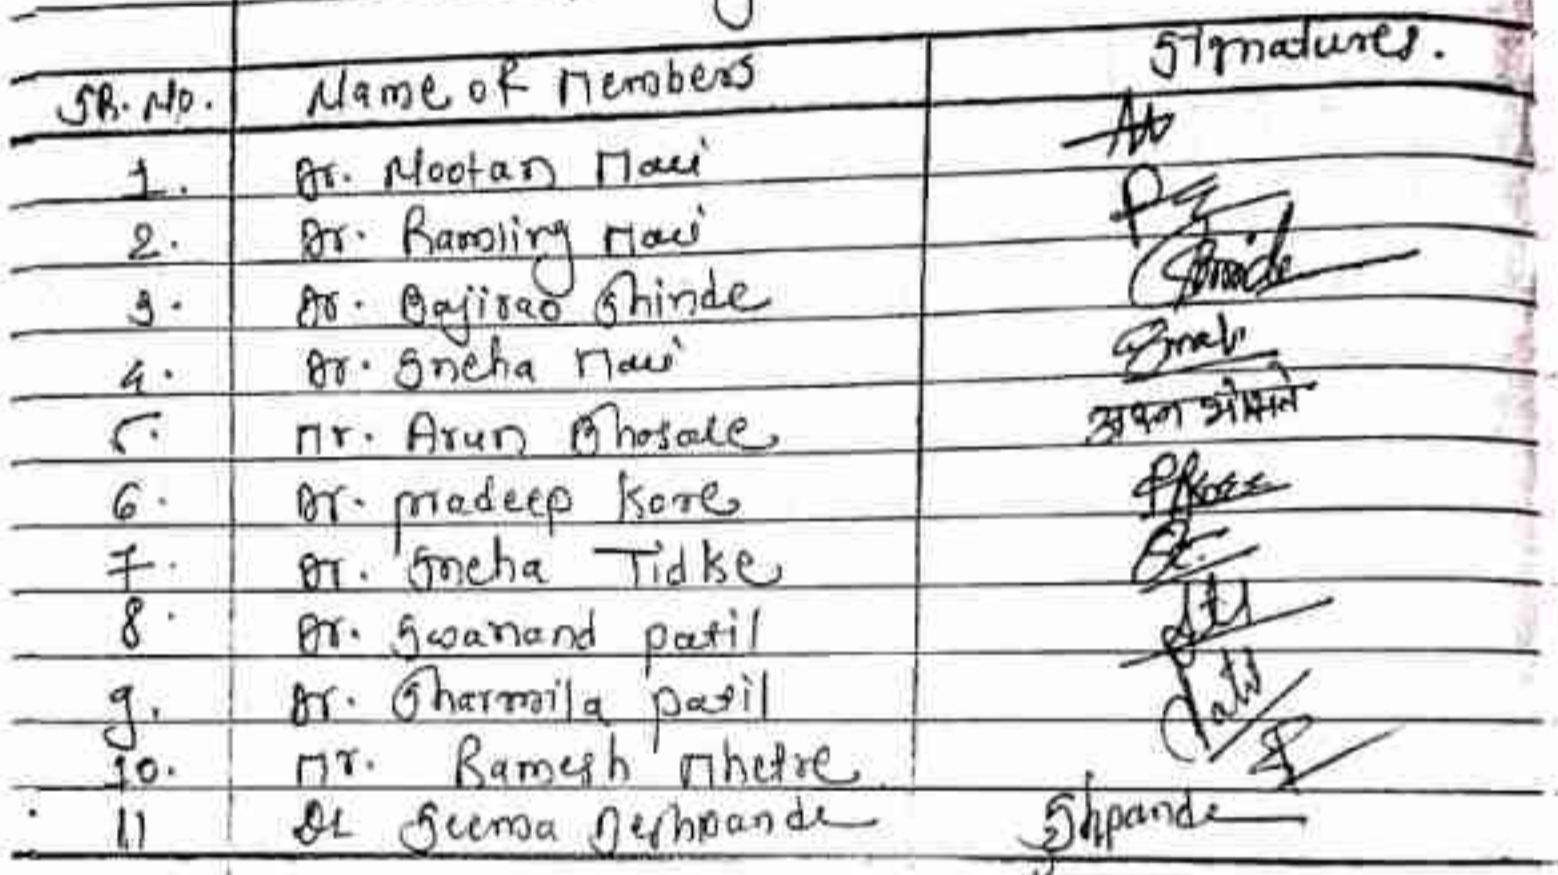 SR. No. Name of Members Signatures.
1. Dr. Nootan Mali
2. Dr. Ramling Mali
3. Dr. Bajirao Shinde
4. Dr. Sneha Mali
5. Mr. Arun Bhosale अरुण भोसले
6. Dr. pradeep Kore PKore
7. Dr. Sneha Tidke
8. Dr. Swanand patil
9. Dr. Sharmila patil Patil
10. Mr. Ramesh Mhetre
11 Dr Seema Deshpande Shpande